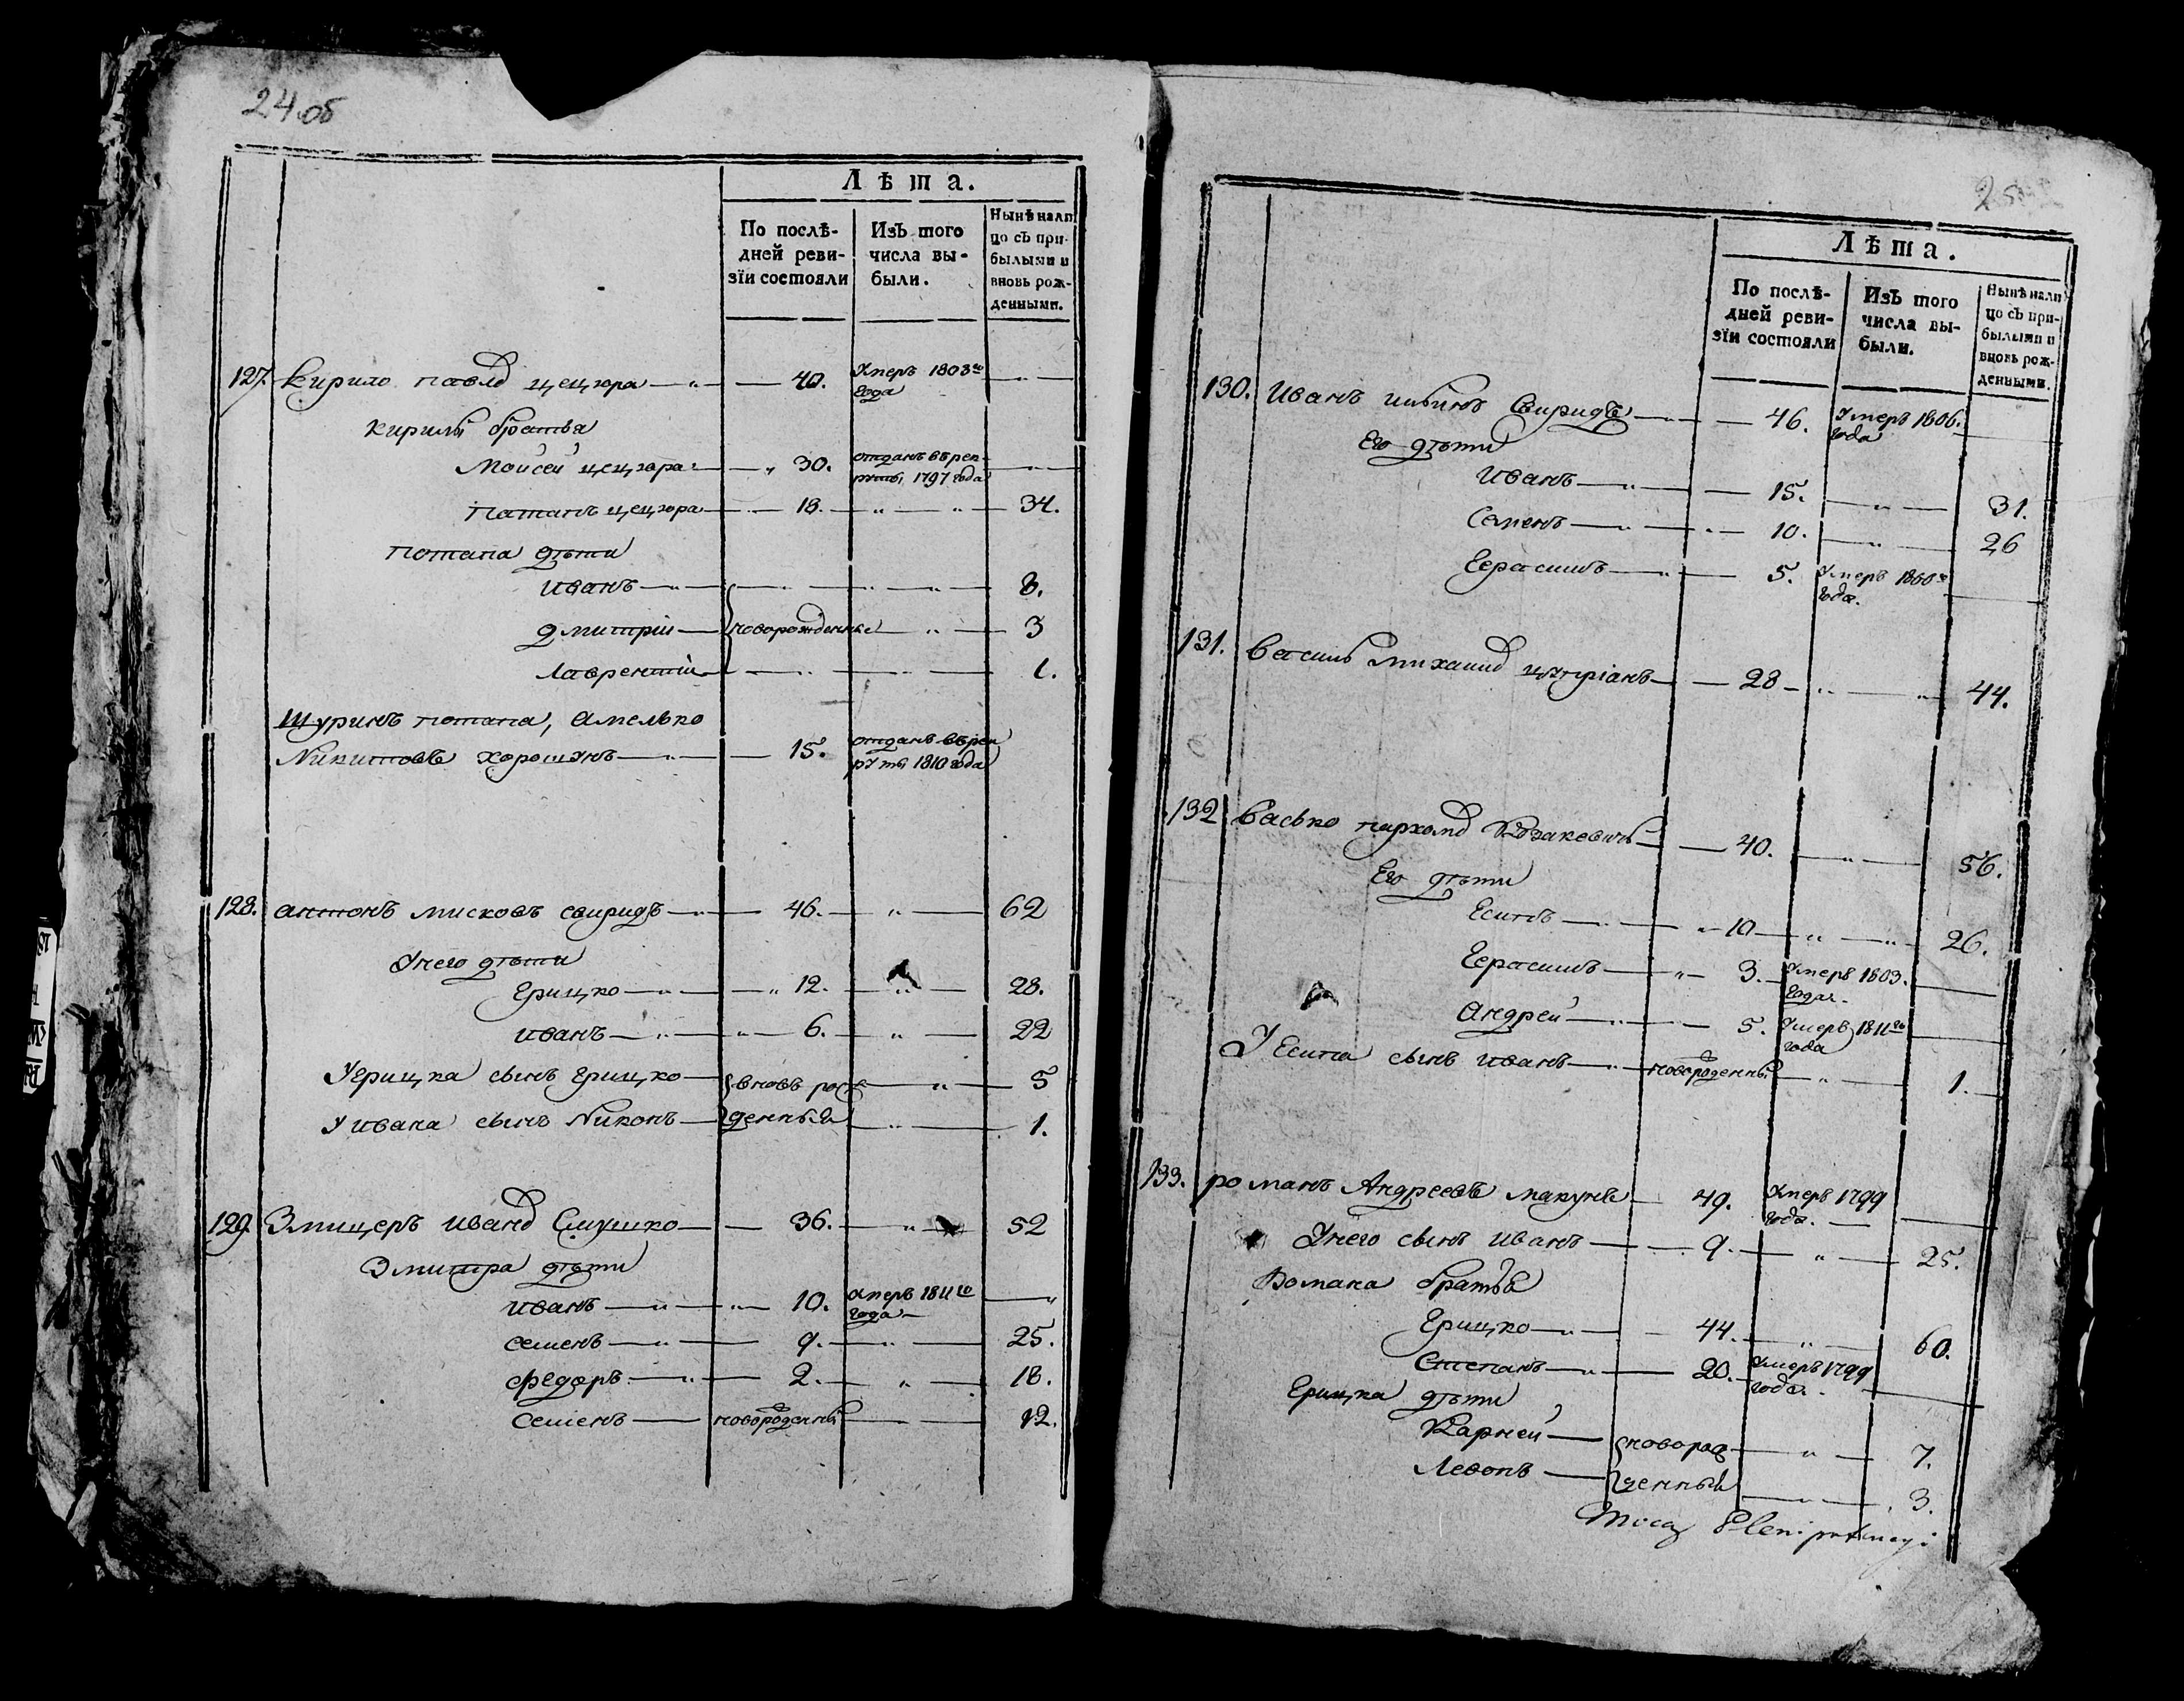 24 об
Лѣта.
По послѣ- Изъ того Нынѣ нали
дней реви- числа вы- цо съ при-
зїи состояли были. былыми и
вновь рож-
денными.
127. Кирило павлов цецюра — 40. Умеръ 1803го года
Кирилы братья
Мойсей цецюра — 30. отданъ в рек-
руты 1797 года
патапъ цецюра — 18. — 34.
потапа дѣти
иванъ — 8.
дмитрiй — новорожденные — 3
лаврентiй — 1.
Шуринъ потапа, Амелько
Никитовъ хорошунъ — 15. отданъ в рек
руты 1810 года
128. антонъ мисковъ свиридъ — 46. — 62
Унего дѣти
Грицко — 12. — 28.
иванъ — 6. — 22
Угрицка сынъ грицко — вновь рож — 5
Уивана сынъ Никонъ — денные — 1.
129. Змицеръ иванов Слушко — 36. — 52
Змитра дѣти
иванъ — 10. Умеръ 1811го
года —
семенъ — 9. — 25.
федоръ — 2. — 18.
семенъ — новорожденный — 12.
Лѣта.
По послѣ- Изъ того Нынѣ нали
дней реви- числа вы- цо съ при-
зїи состояли были. былыми и
вновь рож-
денными.
130. Иванъ ильинъ Свиридъ — 46. Умеръ 1806.
года
Его дѣти
иванъ — 15. — 31.
Семенъ — 10. — 26
Герасимъ — 5. Умеръ
года.
131. Василь михайлов — 28 — 44.
132 Васько пархомов Козакевичъ — 40. — 56.
Его дѣти
Есипъ — 10 — 26.
Герасимъ — 3. Умеръ 1803.
года.
Андрей — 5. Умеръ 1811го
года
У Есипа сынъ иванъ — новорожденный — 1.
133. романъ Андреевъ макунъ — 49. Умеръ 1799
года. —
Унего сынъ иванъ — 9. — 25.
Романа братья
Грицко — 44. — 60.
Степанъ — 20. Умеръ 1799
года.
Грицка дѣти
Карней — новорож — 7.
Левонъ — денный — 3.
Mocą